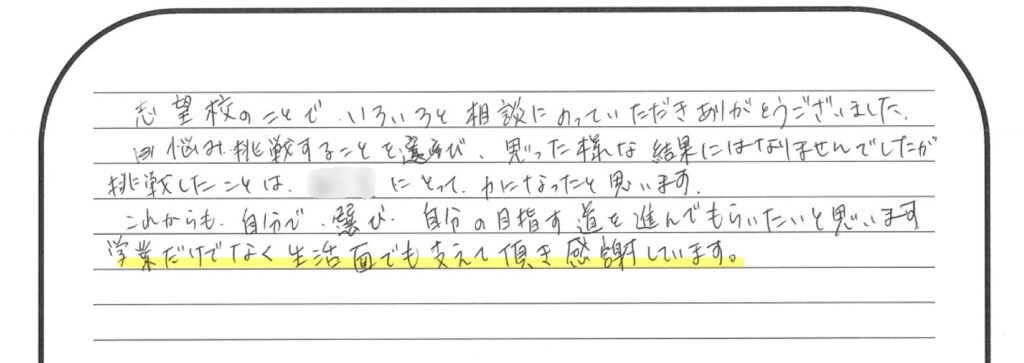 志望校のことで、いろいろと相談にのっていただきありがとうございました。
悩み、挑戦することを選び、思った様な結果にはなりませんでしたが
挑戦したことは、 にとって、力になったと思います。
これからも、自分で、選び、自分の目指す道を進んでもらいたいと思います
学業だけでなく生活面でも支えて頂き感謝しています。